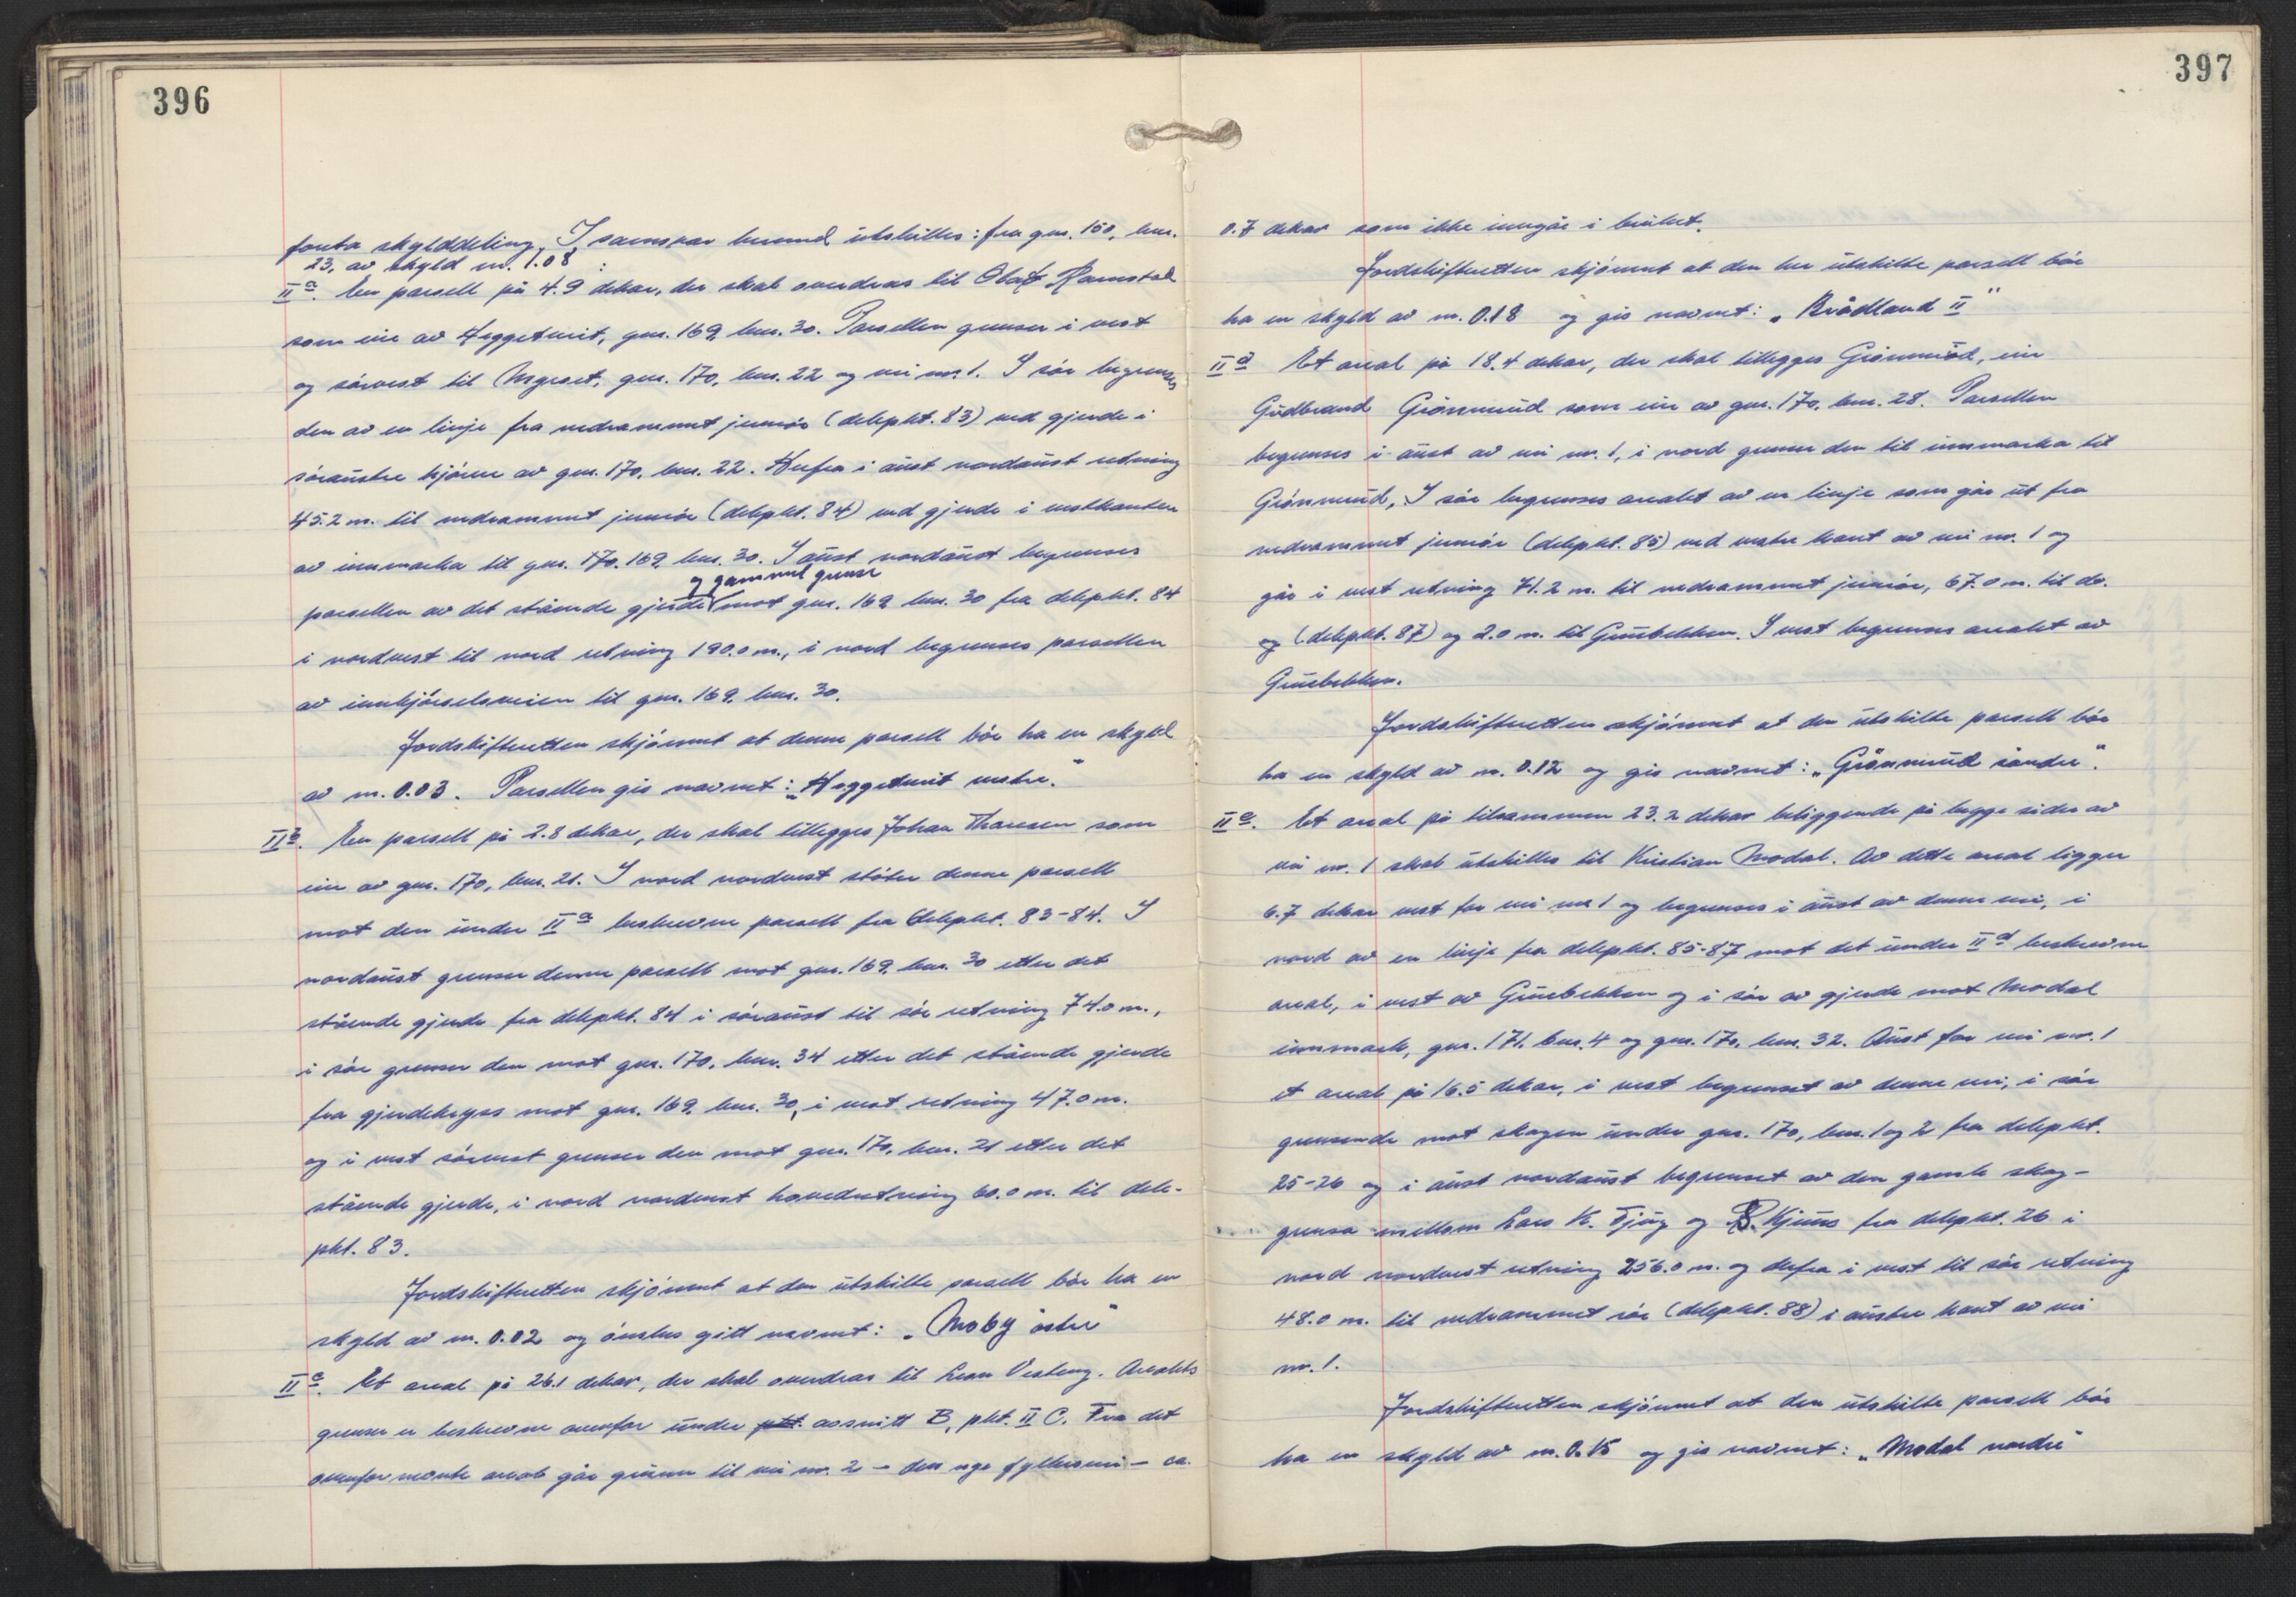 396
foreta skylddeling. I samsvar hermed utskilles: fra gnr. 150, bnr.
23, av skyld m. 1.08:
II a. En parsell på 4.9 dekar, der skal overdras til Olaf Ramstad
som eier av Heggetveit, gnr. 169, bnr. 30. Parsellen grenser i vest
og sørvest til Myreset, gnr. 170, bnr. 22 og vei nr. 1. I sør begrenses
den av en linje fra nedrammet jernrør (delepkt. 83) ved gjerde i
søraustre hjørne av gnr. 170, bnr. 22. Herfra i aust nordaust retning
45.2 m. til nedrammet jernrør (delepkt. 84) ved gjerde i vestkanten
av innmarka til gnr. 170. 169, bnr. 30. I aust nordaust begrenses
parsellen av det stående gjerde og gammel grense mot gnr. 169 bnr. 30 fra delepkt. 84
i nordvest til nord retning 190.0 m., i nord begrenses parsellen
av innkjørselsveien til gnr. 169, bnr. 30.
Jordskifteretten skjønnet at denne parsell bør ha en skyld
av m. 0.03. Parsellen gis navnet: „Heggetveit vestre."
II b. En parsell på 2.8 dekar, der skal tillegges Johan Thoresen som
eier av gnr. 170, bnr. 21. I nord nordvest støter denne parsell
mot den under II a beskrevne parsell fra delepkt. 83-84. I
nordaust grenser denne parsell mot gnr. 169, bnr. 30 etter det
stående gjerde fra delepkt. 84 i søraust til sør retning 74.0 m.,
i sør grenser den mot gnr. 170, bnr. 34 etter det stående gjerde
fra gjerdekryss mot gnr. 169, bnr. 30, i vest retning 47.0 m.
og i vest sørvest grenser den mot gnr. 170, bnr. 21 etter det
stående gjerde, i nord nordvest hovedretning 60.0 m. til dele-
pkt. 83.
Jordskifteretten skjønnet at den utskilte parsell bør ha en
skyld av m. 0.02 og ønskes gitt navnet: „Moby østre"
II c. Et areal på 26.1 dekar, der skal overdras til Vesteng. Arealets
grenser er beskrevne ovenfor under pkt. avsnitt B, pkt. II C. Fra det
ovenfor nevnte areal går grunn til vei nr. 2 - den nye fylkesvei - ca.
397
0.7 dekar som ikke inngår i bruket.
Jordskifteretten skjønnet at den her utskilte parsell bør
ha en skyld av m. 0.18 og gis navnet: „Brådland II"
II d Et areal på 18.4 dekar, der skal tillegges Grønnerud, eier
Gudbrand Grønnerud som eier av gnr. 170, bnr. 28. Parsellen
begrenses i aust av vei nr. 1, i nord grenser den til innmarka til
Grønnerud, I sør begrenses arealet av en linje som går ut fra
nedrammet jernrør (delepkt. 85) ved vestre kant av vei nr. 1 og
går i vest retning 71.2 m. til nedrammet jernrør, 67.0 m. til do.
og (delepkt. 87) og 2.0 m. til Gruebekken. I vest begrenses arealet av
Gruebekken.
Jordskifteretten skjønnet at den utskilte parsell bør
ha en skyld av m. 0.12 og gis navnet: „Grønnerud søndre".
II e. Et areal på tilsammen 23.2 dekar beliggende på begge sider av
vei nr. 1 skal utskilles til Kristian Modal. Av dette areal ligger
6.7 dekar vest for vei nr. 1 og begrenses i aust av denne vei, i
nord av en linje fra delepkt. 85-87 mot det under II d beskrevne
areal, i vest av Gruebekken og i sør av gjerde mot Modal
innmark, gnr. 171, bnr. 4 og gnr. 170, bnr. 32. Aust for vei nr. 1
et areal på 16.5 dekar, i vest begrenset av denne vei, i sør
grensende mot skogen under gnr. 170, bnr. 1 og 2 fra delepkt.
25-26 og i aust nordaust begrenset av den gamle skog-
grensa mellom Lars K. Tjug og Kjuus fra delepkt. 26 i
nord nordvest retning 256.0 m. og derfra i vest til sør retning
48.0 m. til nedrammet rør (delepkt. 88) i austre kant av vei
nr. 1.
Jordskifteretten skjønnet at den utskilte parsell bør
ha en skyld av m. 0.15 og gis navnet: „Modal nordre"